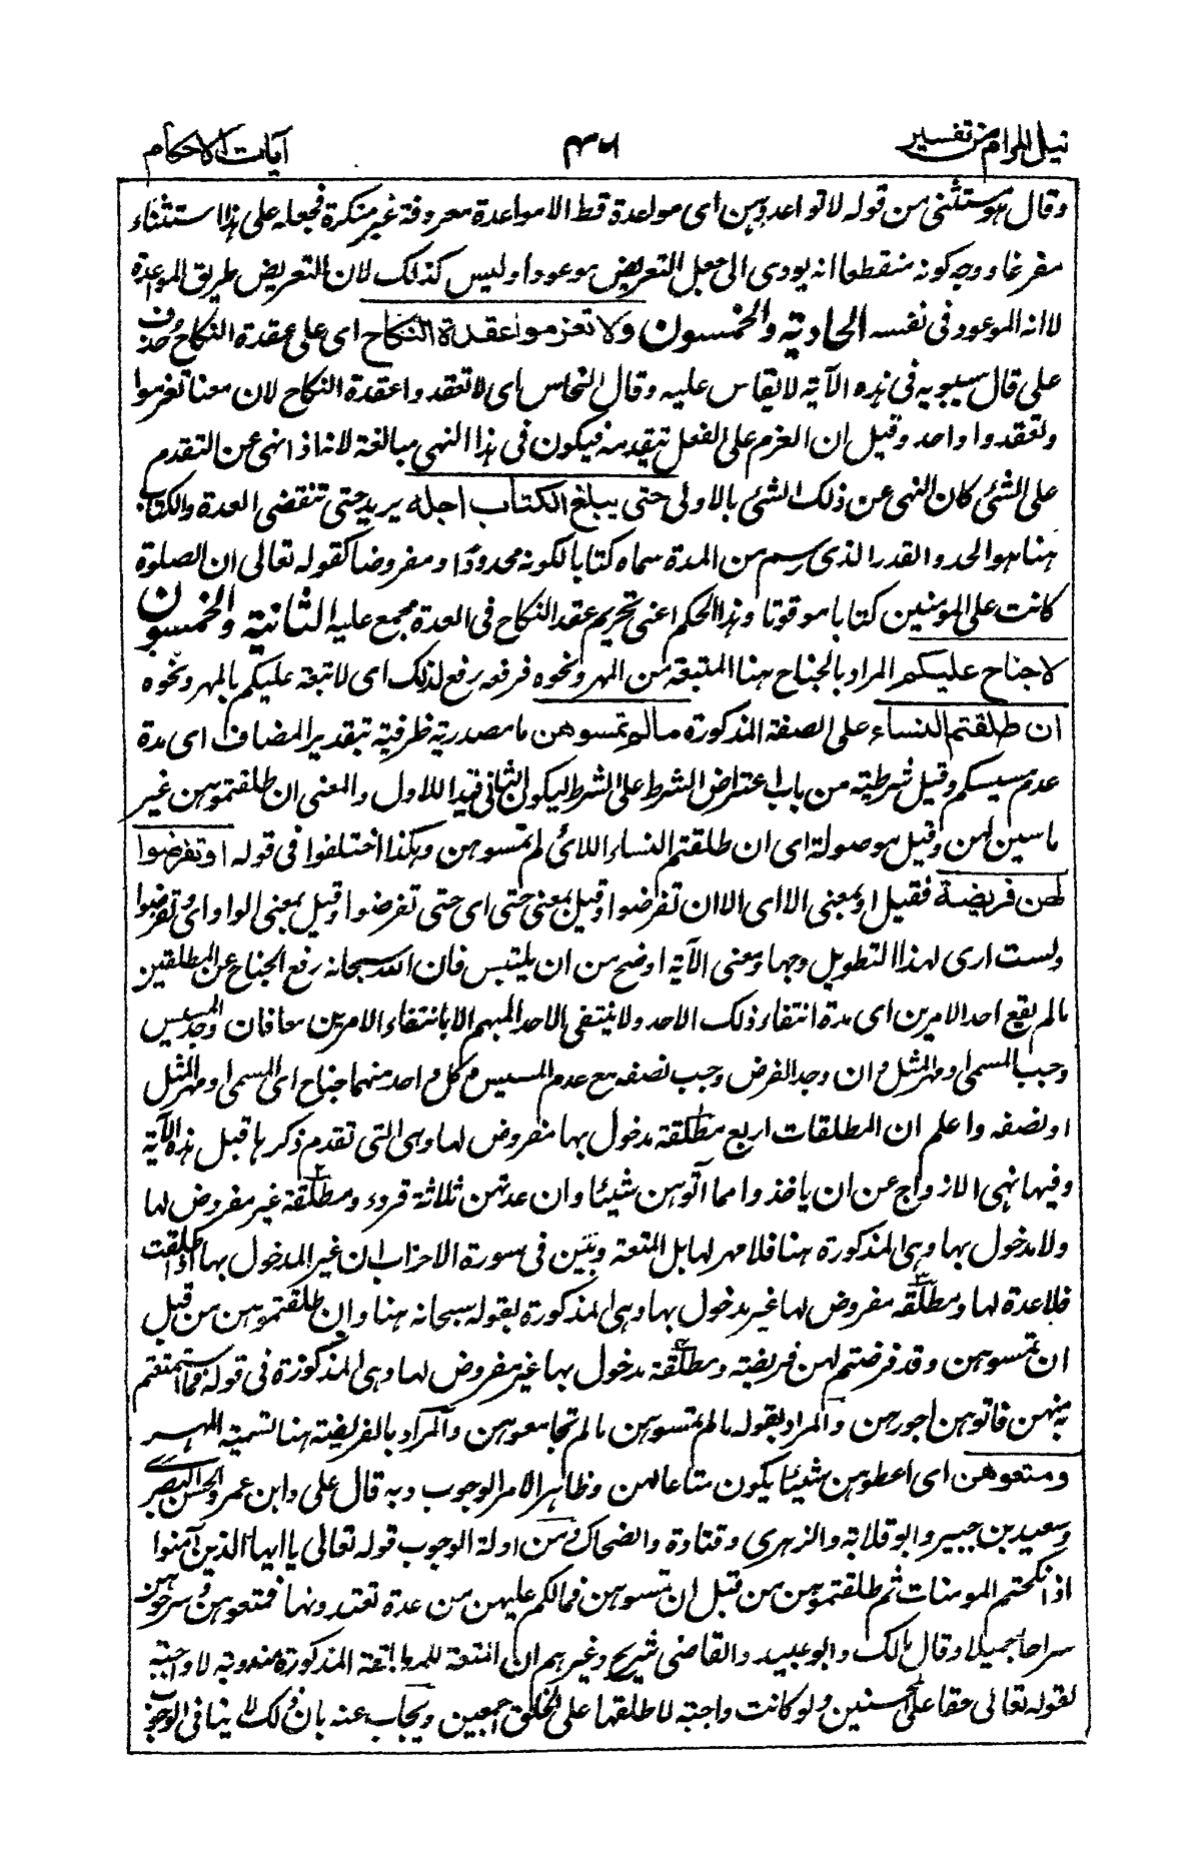 نيل المرام من تفسير
آيات الاحكام
وقال هو مستثنى من قوله لا تواعدوهن اى مواعدة قط الا مواعدة معروفة غير منكرة فجعله على هذا استثناء
مفرغا ووجه كونه منقطعا انه يودى الى جعل التعريض موعودا وليس كذلك لان التعريض طريق المواعدة
لا انه الموعود فى نفسه الحادية والخمسون ولا تعزموا عقدة النكاح اى على عقدة النكاح حذف
على قال سيبويه فى هذه الآية لا يقاس عليه وقال النحاس اى لا تعقدوا عقدة النكاح لان معنا تعزموا
وتعقدوا واحد وقيل ان العزم على الفعل يتقدمه فيكون فى هذا النهى مبالغة لانه اذا نهى عن التقدم
على الشئ كان النهى عن ذلك الشئ بالاولى حتى يبلغ الكتاب اجله يريد حتى تنقضى العدة والكتاب
هنا هو الحد والقدر الذى رسم من المدة سماه كتابا لكونه محدودا ومفروضا كقوله تعالى ان الصلوة
كانت على المومنين كتابا موقوتا وهذا الحكم اعنى تحريم عقد النكاح فى العدة مجمع عليه الثانية والخمسون
لا جناح عليكم المراد بالجناح هنا التبعة من المهر ونحوه فرفعه رفع لذلك اى لا تبعة عليكم بالمهر ونحوه
ان طلقتم النساء على الصفة المذكورة مالم تمسوهن ما مصدرية ظرفية بتقدير المضاف اى مدة
عدم مسيسكم وقيل شرطية من باب اعتراض الشرط على الشرط ليكون الثانى قيدا للاول والمعنى ان طلقتموهن غير
ماسين لهن وقيل موصولة اى ان طلقتم النساء اللائى لم تمسوهن وهكذا اختلفوا فى قوله او تفرضوا
لهن فريضة فقيل او بمعنى الا اى الا ان تفرضوا وقيل بمعنى حتى اى حتى تفرضوا وقيل بمعنى الواو اى وتفرضوا
ولست ارى لهذا التطويل وجها ومعنى الآية اوضح من ان يلتبس فان الله سبحانه رفع الجناح عن المطلقين
مالم يقع احد الامرين اى مدة انتفاء ذلك الاحد ولا ينتفى الاحد المبهم الا بانتفاء الامرين معا فان وجد المسيس
وجب المسمى او مهر المثل وان وجد الفرض وجب نصفه مع عدم المسيس وكل واحد منهما جناح اى المسمى او مهر المثل
او نصفه واعلم ان المطلقات اربع مطلقة مدخول بها مفروض لها وهى التى تقدم ذكرها قبل هذه الآية
وفيها نهى الازواج عن ان ياخذوا مما آتوهن شيئا وان عدتهن ثلاثة قروء ومطلقة غير مفروض لها
ولا مدخول بها وهى المذكورة هنا فلا مهر لها بل المتعة وبين فى سورة الاحزاب ان غير المدخول بها اذا طلقت
فلا عدة لها ومطلقة مفروض لها غير مدخول بها وهى المذكورة بقوله سبحانه هنا وان طلقتموهن من قبل
ان تمسوهن وقد فرضتم لهن فريضة ومطلقة مدخول بها غير مفروض لها وهى المذكورة فى قوله فما استمتعتم
به منهن فاتوهن اجورهن والمراد بقوله مالم تمسوهن مالم تجامعوهن والمراد بالفريضة هنا تسمية المهر
ومتعوهن اى اعطوهن شيئا يكون متاعا لهن وظاهر الامر الوجوب وبه قال على وابن عمر والحسن البصرى
وسعيد بن جبير وابو قلابة والزهرى وقتادة والضحاك ومن ادلة الوجوب قوله تعالى يا ايها الذين آمنوا
اذا نكحتم المومنات ثم طلقتموهن من قبل ان تمسوهن فمالكم عليهن من عدة تعتدونها فمتعوهن وسرحوهن
سراحا جميلا وقال مالك وابو عبيد والقاضى شريح وغيرهم ان المتعة للمطلقة المذكورة مندوبة لا واجبة
لقوله تعالى حقا على المحسنين ولو كانت واجبة لاطلقها على الخلق اجمعين ويجاب عنه بان ذلك لا ينافى الوجوب